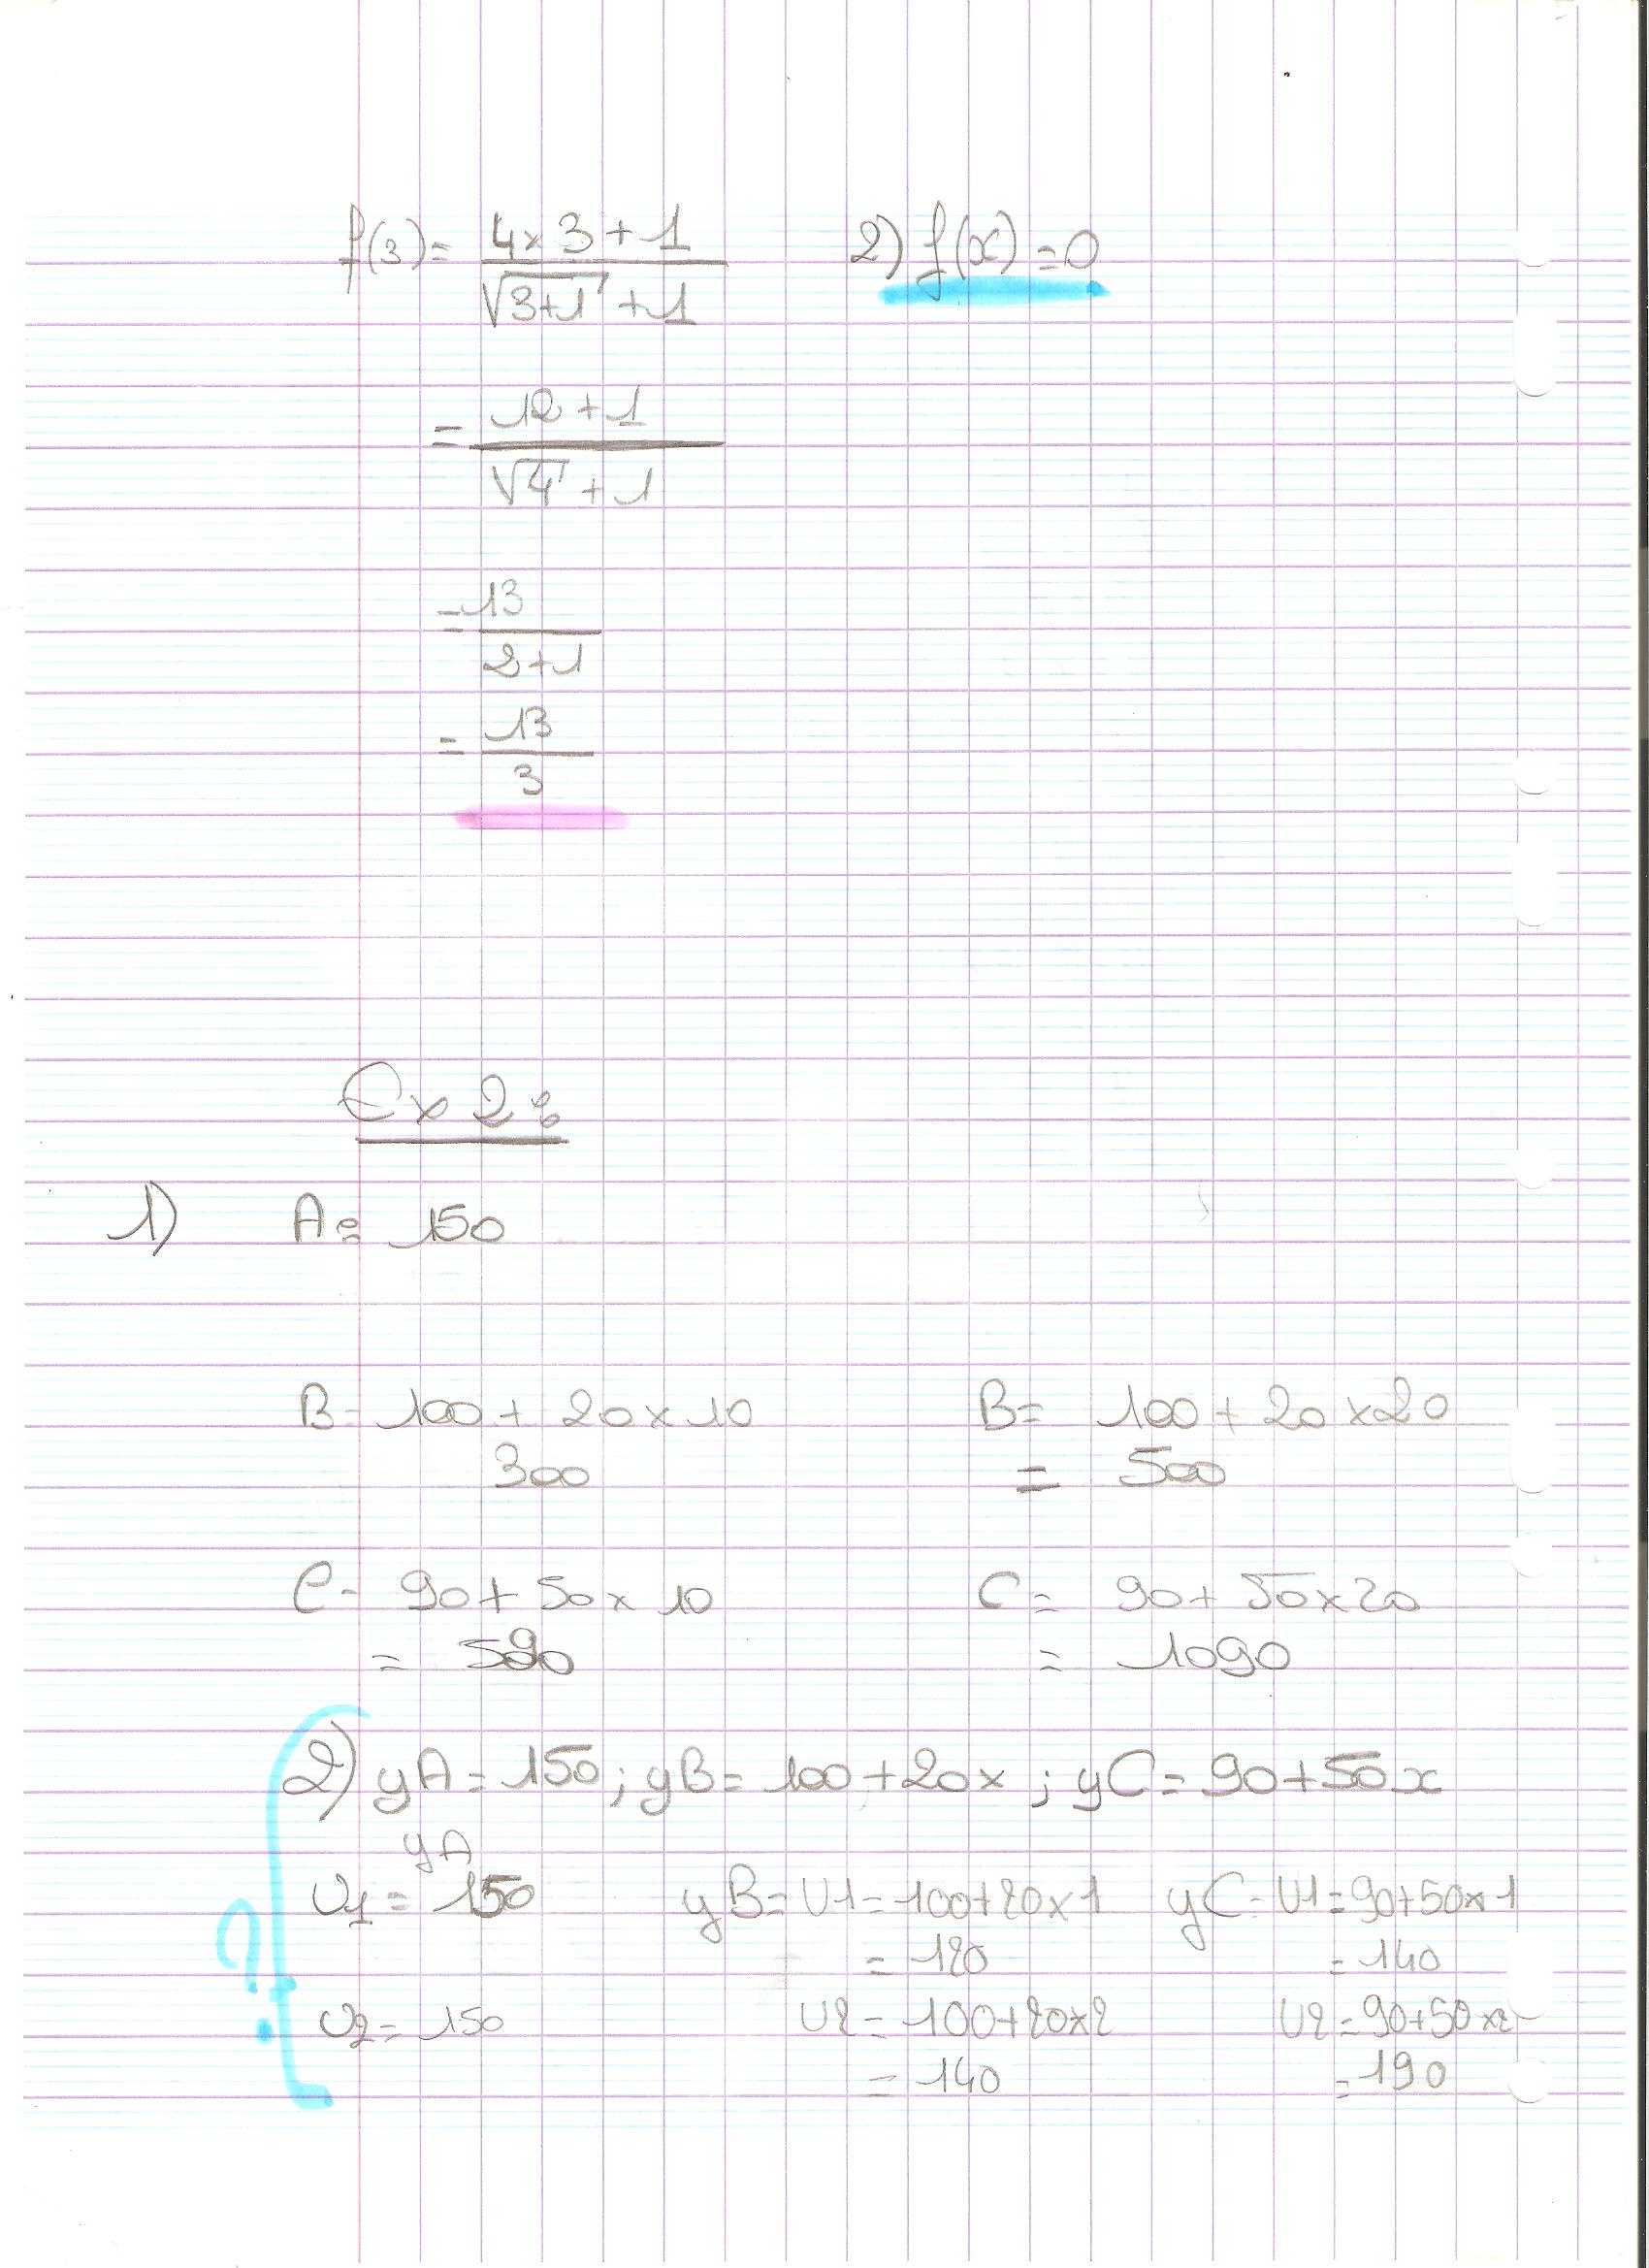 f(3) = (4×3+1)/(√(3+1) + 1)
2) f(x) = 0
= (12+1)/(√4 + 1)
= 13/(2+1)
= 13/3
Ex 2 :
1) A = 150
B = 100 + 20 × 10 B = 100 + 20 × 20
300 = 500
C = 90 + 50 × 10 C = 90 + 50 × 20
= 590 = 1090
2) yA = 150 ; yB = 100 + 20x ; yC = 90 + 50x
yA
U1 = 150 yB = U1 = 100+20×1 yC = U1 = 90+50×1
= 120 = 140
? U2 = 150 U2 = 100+20×2 U2 = 90+50×2
= 140 = 190